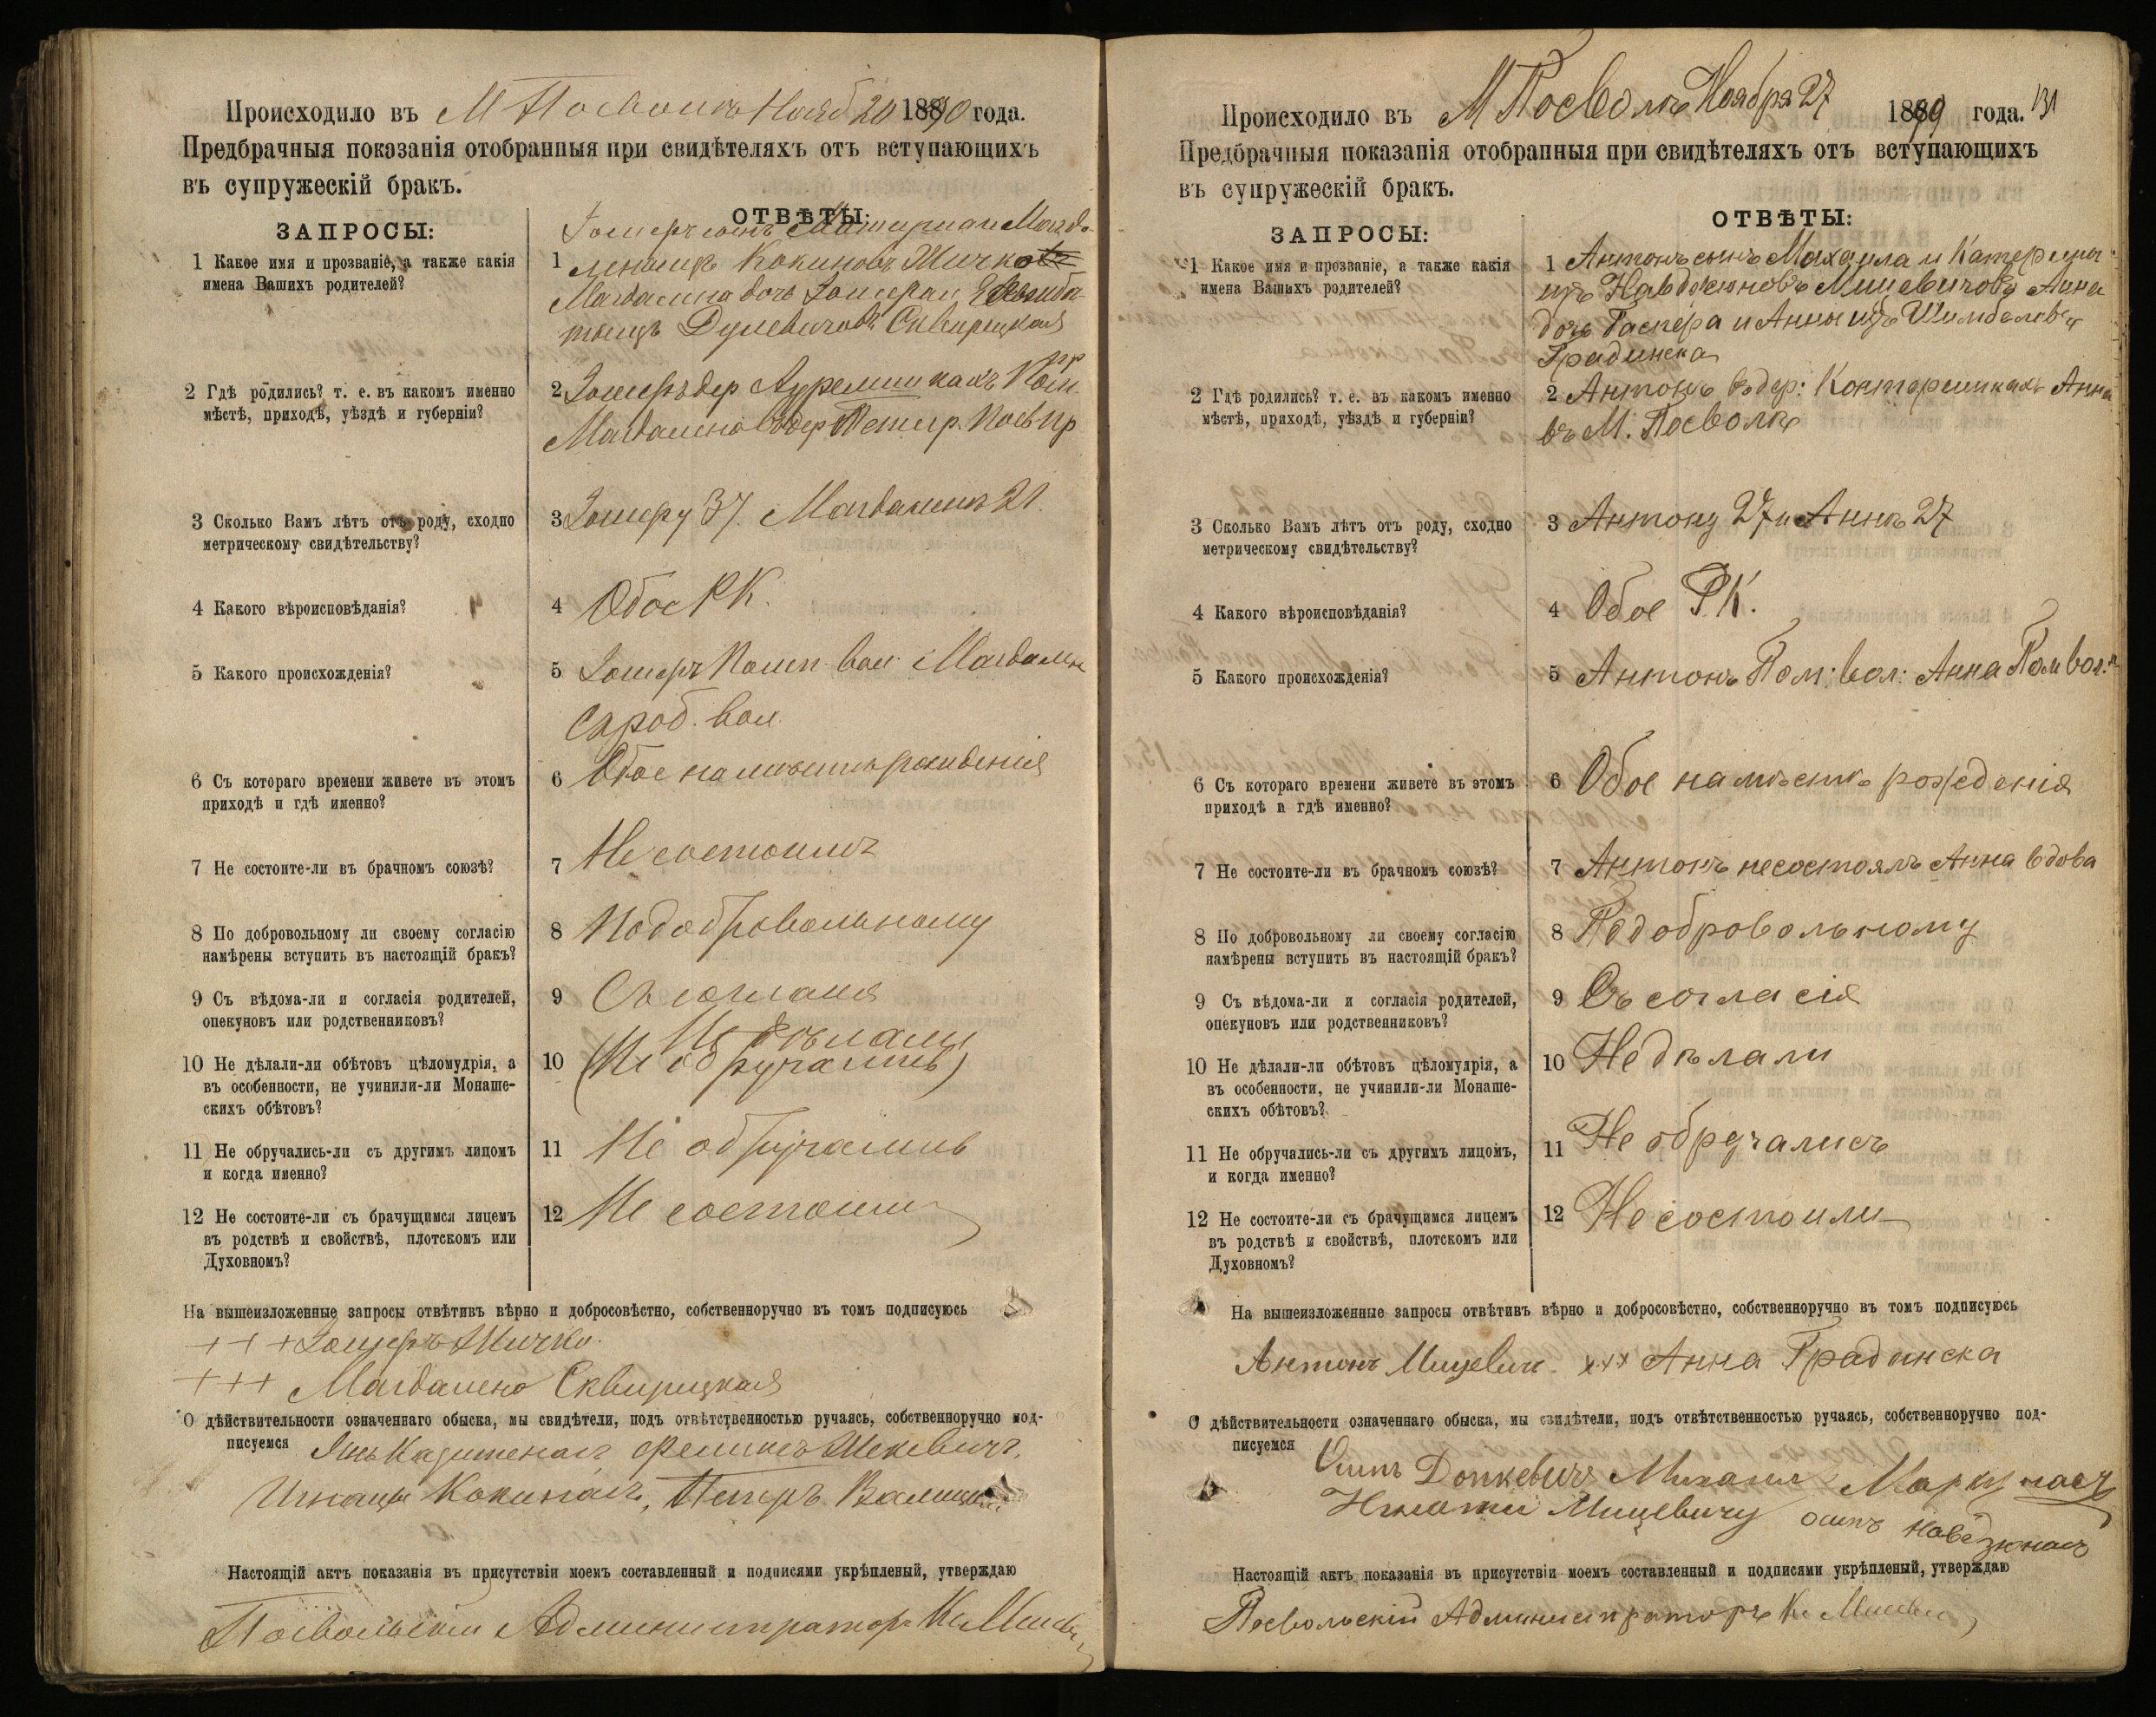 Происходило въ М Посволѣ Нояб 20 1890 года.
Предбрачныя показанія отобранныя при свидѣтеляхъ отъ вступающихъ
въ супружескій бракъ.
ЗАПРОСЫ:
ОТВѢТЫ:
1 Какое имя и прозваніе, а также какія
имена Вашихъ родителей?
1
Магдалина дочь
Сквирецкая
2 Гдѣ родились? т. е. въ какомъ именно
мѣстѣ, приходѣ, уѣздѣ и губерніи?
2
Магдалена въ дер
3 Сколько Вамъ лѣтъ отъ роду, сходно
метрическому свидѣтельству?
3 37. Магдаленѣ 21.
4 Какого вѣроисповѣданія?
4 Обое РК.
5 Какого происхожденія?
5 вол. Магдалена
вол.
6 Съ котораго времени живете въ этомъ
приходѣ и гдѣ именно?
6 Обое на мѣстѣ рождения
7 Не состоите-ли въ брачномъ союзѣ?
7 Не состоимъ
8 По добровольному ли своему согласію
намѣрены вступить въ настоящій бракъ?
8 По добровольному
9 Съ вѣдома-ли и согласія родителей,
опекуновъ или родственниковъ?
9 Съ согласия
10 Не дѣлали-ли обѣтовъ цѣломудрія, а
въ особенности, не учинили-ли Монаше-
скихъ обѣтовъ?
Не дѣлали
10 (Не обручались)
11 Не обручались-ли съ другимъ лицомъ
и когда именно?
11 Не обручались
12 Не состоите-ли съ брачущимся лицемъ
въ родствѣ и свойствѣ, плотскомъ или
Духовномъ?
12 Не состоими
На вышеизложенные запросы отвѣтивъ вѣрно и добросовѣстно, собственноручно въ томъ подписуюсь
+++
+++ Магдалено Сквирецкая
О дѣйствительности означеннаго обыска, мы свидѣтели, подъ отвѣтственностью ручаясь, собственноручно под-
писуемся
Настоящій актъ показанія въ присутствіи моемъ составленный и подписями укрѣпленый, утверждаю
Посвольскій Администраторъ К.

131
Происходило въ М Посволѣ Ноября 27 1889 года.
Предбрачныя показанія отобранныя при свидѣтеляхъ отъ вступающихъ
въ супружескій бракъ.
ЗАПРОСЫ:
ОТВѢТЫ:
1 Какое имя и прозваніе, а также какія
имена Вашихъ родителей?
1 Антонъ сынъ Михаила и Катерины
изъ Мицевичовъ Анна
дочь Гаспера и Анны изъ
Градинска
2 Гдѣ родились? т. е. въ какомъ именно
мѣстѣ, приходѣ, уѣздѣ и губерніи?
2 Антонъ въ дер: Анна
въ М. Посволѣ
3 Сколько Вамъ лѣтъ отъ роду, сходно
метрическому свидѣтельству?
3 Антону 27 и Аннѣ 27
4 Какого вѣроисповѣданія?
4 Обое Р.К.
5 Какого происхожденія?
5 Антонъ Пом: вол: Анна Пом вол:
6 Съ котораго времени живете въ этомъ
приходѣ и гдѣ именно?
6 Обое на мѣстѣ рожденія
7 Не состоите-ли въ брачномъ союзѣ?
7 Антонъ несостоялъ Анна вдова
8 По добровольному ли своему согласію
намѣрены вступить въ настоящій бракъ?
8 По добровольному
9 Съ вѣдома-ли и согласія родителей,
опекуновъ или родственниковъ?
9 Съ согласія
10 Не дѣлали-ли обѣтовъ цѣломудрія, а
въ особенности, не учинили-ли Монаше-
скихъ обѣтовъ?
10 Не дѣлали
11 Не обручались-ли съ другимъ лицомъ,
и когда именно?
11 Не обручалисъ
12 Не состоите-ли съ брачущимся лицемъ
въ родствѣ и свойствѣ, плотскомъ или
Духовномъ?
12 Не состоили
На вышеизложенные запросы отвѣтивъ вѣрно и добросовѣстно, собственноручно въ томъ подписуюсь
Антонъ Мицевич. xxx Анна Градинска
О дѣйствительности означеннаго обыска, мы свидѣтели, подъ отвѣтственностью ручаясь, собственноручно под-
писуемся
Осипъ Донкевичъ Михаил Маркунасъ
Мицевичу осипъ
Настоящій актъ показанія въ присутствіи моемъ составленный и подписями укрѣпленый, утверждаю
Посвольскій Администраторъ К.